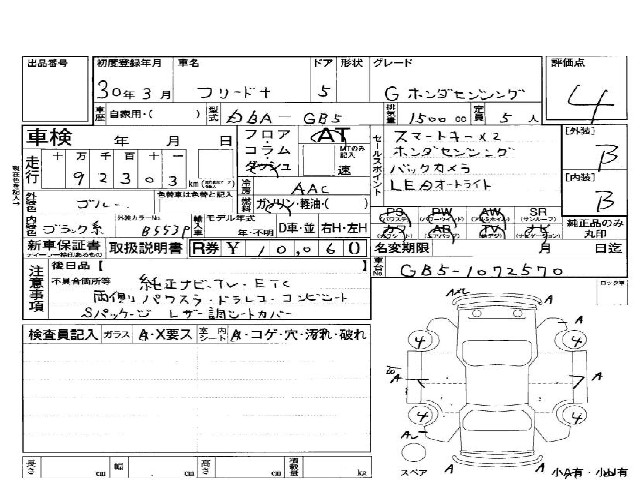 出品番号 初度登録年月 車名 ドア 形状 グレード 評価点
30年3月 フリード+ 5 G ホンダセンシング 4
車歴 自家用・( ) 型式 DBA-GB5 排気量 1500cc 定員 5人
車検 年 月 日 フロア AT スマートキー×2 [外装]
コラム MTのみ記入 ホンダセンシング B
走行 十万千百十一 ダッシュ 速 セールスポイント バックカメラ
92303km 冷房 AAC LEDオートライト [内装]
外装色 ブルー 色替車は色替と記入 燃料 ガソリン・軽油・( ) B
PS PW AW SR
内装色 ブラック系 外装カラーNo. B553P 輸入車 モデル年式 年・不明 D車・並 右H・左H カワ AB TV ナビ 純正品のみ丸印
新車保証書 取扱説明書 R券 ¥10,060 名変期限 月 日迄
後日品【 】 GB5-1072570
注意事項 不具合箇所等 純正ナビ・TV・ETC
両側パワスラ・ドラレコ・コンビシート
Sパッケージ レザー調シートカバー
検査員記入 ガラス A・X要ス 室内シート A・コゲ・穴・汚れ・破れ
A 4 4 A
A A
A 4 4 A
スペア 小A有・小U有
長さ cm 幅 cm 高さ cm 積載量 kg